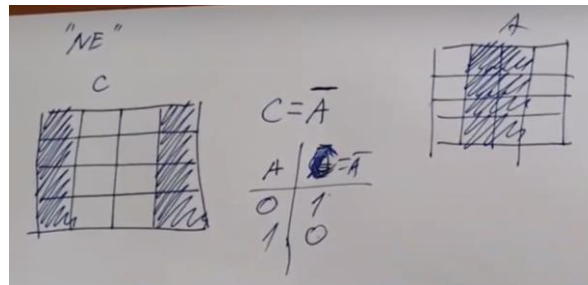 "NE"
C
C = A̅
A | C = A̅
0 | 1
1 | 0
A